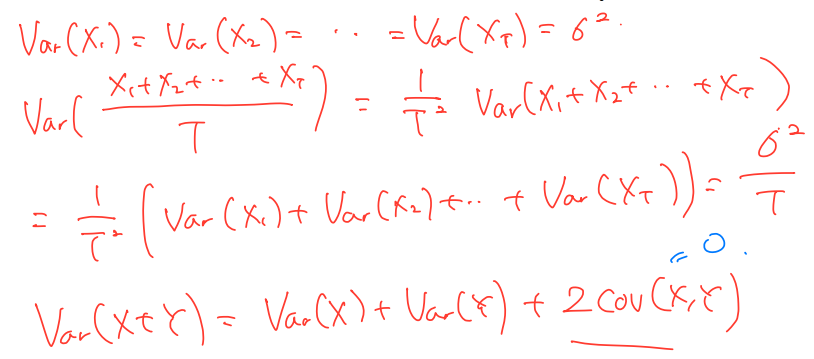 Var(X₁) = Var(X₂) = ‥ = Var(X_T) = σ².
Var((X₁+X₂+‥+X_T)/T) = 1/T² Var(X₁+X₂+‥+X_T)
= 1/T² (Var(X₁)+Var(X₂)+‥+Var(X_T)) = σ²/T
= 0.
Var(X+Y) = Var(X)+Var(Y)+2cov(X,Y)